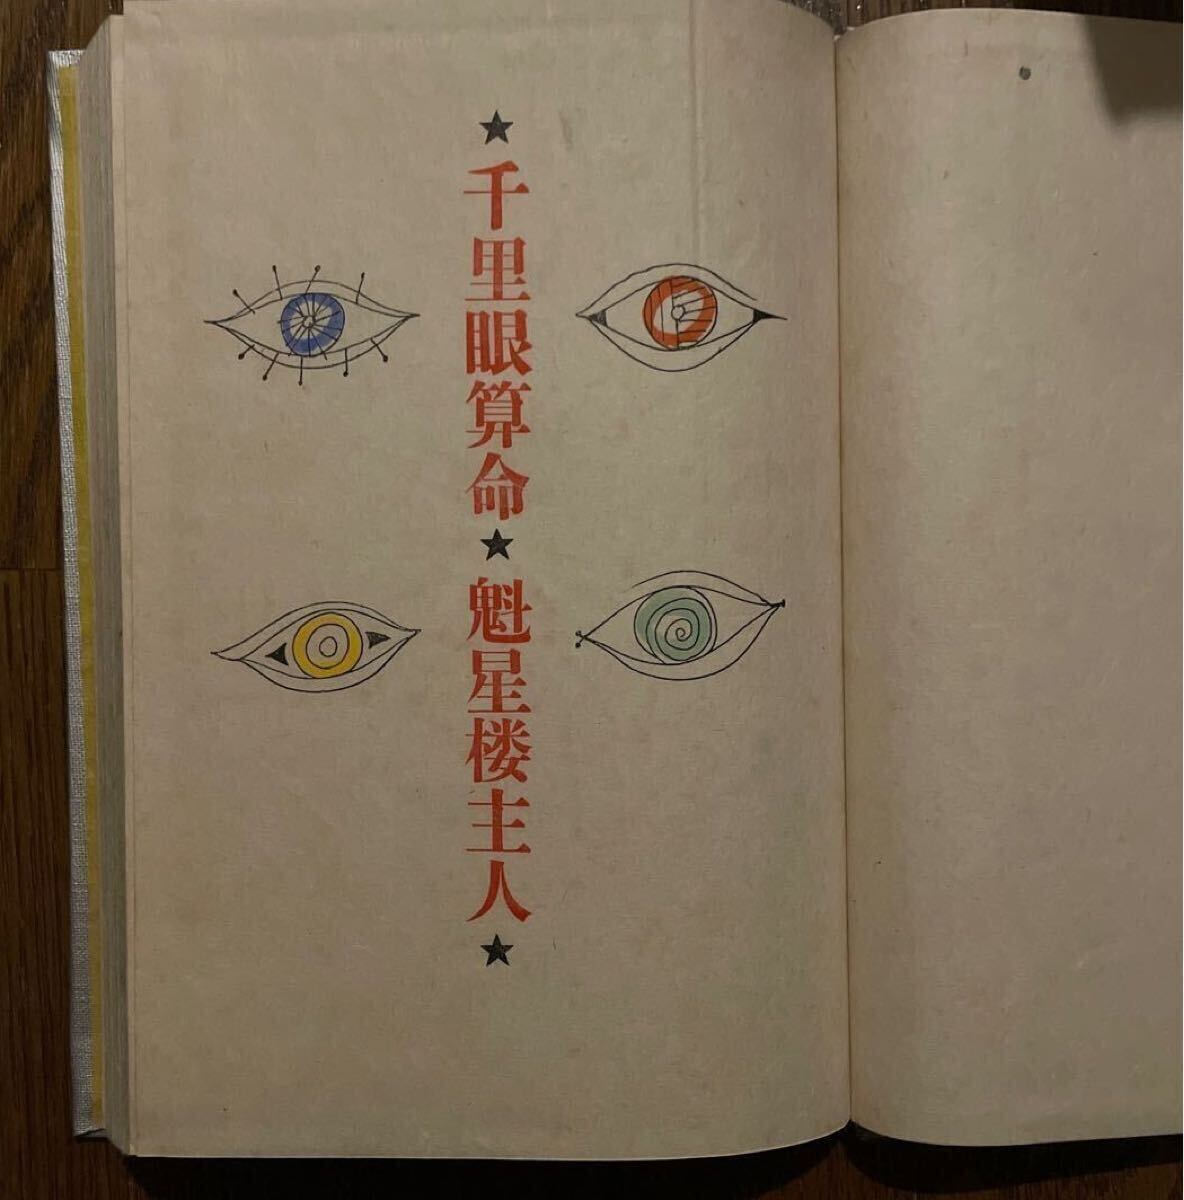 ★千里眼算命★魁星楼主人★